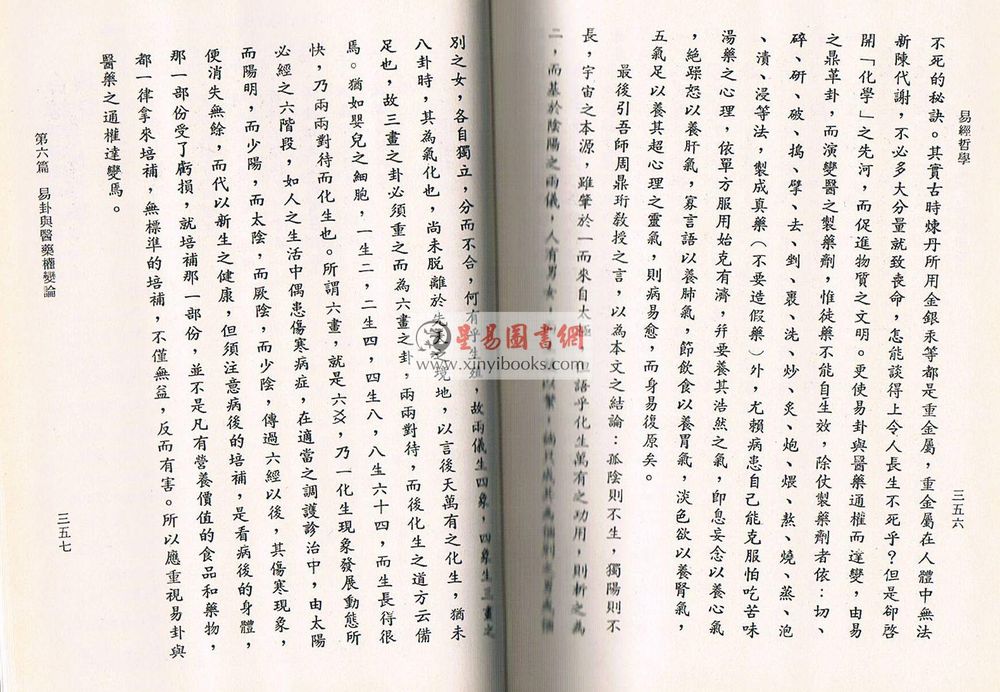 易經哲學
三五六
不死的秘訣。其實古時煉丹所用金銀汞等都是重金屬，重金屬在人體中無法
新陳代謝，不必多大分量就致喪命，怎能談得上令人長生不死乎？但是卻啓
開「化學」之先河，而促進物質之文明。更使易卦與醫藥通權而達變，由易
之鼎革卦，而演變醫之製藥劑，惟徒藥不能自生效，除仗製藥劑者依：切、
碎、研、破、搗、擘、去、剉、裹、洗、炒、炙、炮、煨、熬、燒、蒸、泡
、漬、浸等法，製成真藥（不要造假藥）外，尤賴病患自己能克服怕吃苦味
湯藥之心理，依單方服用始克有濟，幷要養其浩然之氣，卽息妄念以養心氣
，絕躁怒以養肝氣，寡言語以養肺氣，節飲食以養胃氣，淡色欲以養腎氣，
五氣足以養其超心理之靈氣，則病易愈，而身易復原矣。
最後引吾師周鼎珩教授之言，以為本文之結論：孤陰則不生，獨陽則不
長，宇宙之本源，雖肇於一而來自太極，語乎化生萬有之功用，則析之為
二，而基於陰陽之兩儀，人有男女，
別之女，各自獨立，分而不合，何有乎生殖，故兩儀生四象，四象生三畫之
八卦時，其為氣化也，尚未脫離於先天之境地，以言後天萬有之化生，猶未
足也，故三畫之卦必須重之而為六畫之卦，兩兩對待，而後化生之道方云備
焉。猶如嬰兒之細胞，一生二，二生四，四生八，八生六十四，而生長得很
快，乃兩兩對待而化生也。所謂六畫，就是六爻，乃一化生現象發展動態所
必經之六階段，如人之生活中偶患傷寒病症，在適當之調護診治中，由太陽
而陽明，而少陽，而太陰，而厥陰，而少陰，傳過六經以後，其傷寒現象，
便消失無餘，而代以新生之健康，但須注意病後的培補，是看病後的身體，
那一部份受了虧損，就培補那一部份，並不是凡有營養價值的食品和藥物，
都一律拿來培補，無標準的培補，不僅無益，反而有害。所以應重視易卦與
醫藥之通權達變焉。
第六篇　易卦與醫藥權變論
三五七
星易圖書網
www.xinyibooks.com